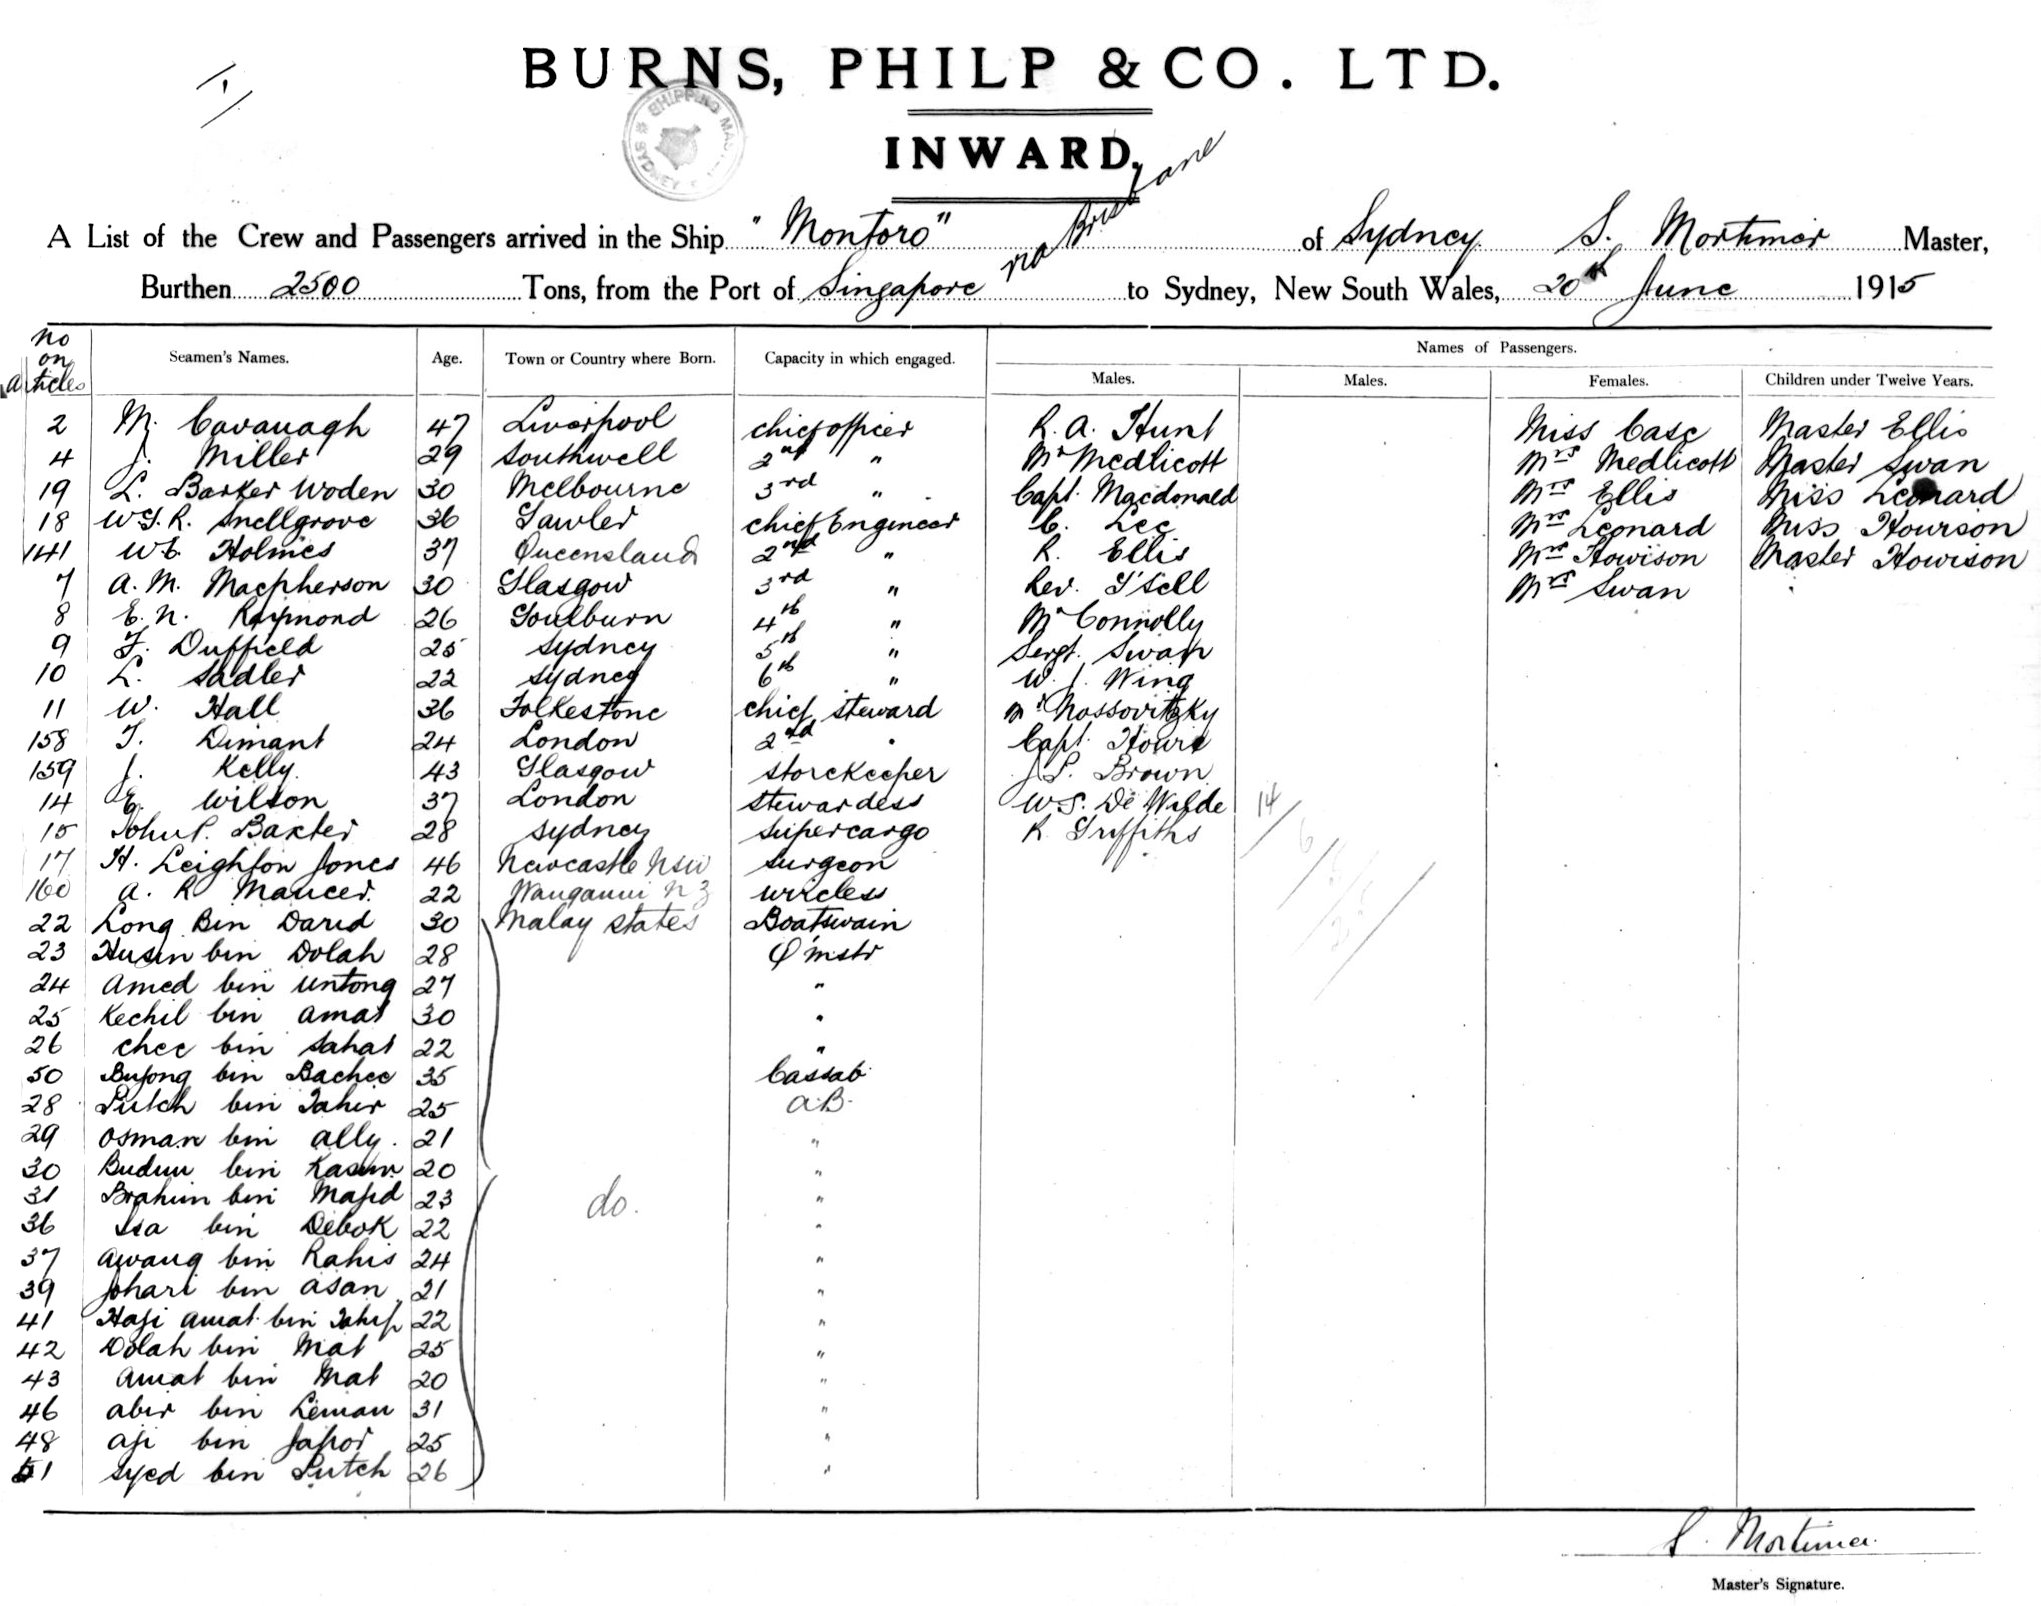 BURNS, PHILP & CO. LTD.
SHIPPING MAS
SYDNEY
INWARD.
via Brisbane
A List of the Crew and Passengers arrived in the Ship "Montoro" of Sydney S. Mortimer Master,
Burthen 2500 Tons, from the Port of Singapore to Sydney, New South Wales, 20th June 1915
No on Articles Seamen's Names. Age. Town or Country where Born. Capacity in which engaged. Names of Passengers.
Males. Males. Females. Children under Twelve Years.
2 M. Cavanagh 47 Liverpool chief officer R. A. Hunt Miss Case Master Ellis
4 J. Miller 29 Southwell 2nd " Mr Medlicott Mrs Medlicott Master Swan
19 L. Barker Woden 30 Melbourne 3rd " Capt. Macdonald Mrs Ellis Miss Leonard
18 W.G.R. Snellgrove 36 Gawler chief Engineer C. Lee Mrs Leonard Miss Howison
141 W.C. Holmes 37 Queensland 2nd " R. Ellis Mrs Howison Master Howison
7 A. M. Macpherson 30 Glasgow 3rd " Rev. I'sell Mrs Swan
8 E. N. Raymond 26 Goulburn 4th " Mr Connolly
9 F. Duffield 25 Sydney 5th " Sergt. Swan
10 L. Sadler 22 Sydney 6th " W. J. Wing
11 W. Hall 36 Folkestone chief steward Mr Nossovitzky
158 T. Dimant 24 London 2nd " Capt. Howie
159 J. Kelly. 43 Glasgow storekeeper J.P. Brown
14 E. Wilson 37 London stewardess W.S. De Wilde 14
15 John P. Baxter 28 Sydney supercargo R Griffiths 6
17 H. Leighton Jones 46 Newcastle NSW surgeon
160 A. R Maucer. 22 Wanganui NZ wireless
22 Long Bin Darid 30 Malay States Boatswain
23 Husin bin Dolah 28 Q'mstr
24 Amed bin Untong 27 "
25 Kechil bin Amat 30 "
26 Chee bin Sahat 22 "
50 Bujong bin Bachee 35 Cassab
28 Puteh bin Tahir 25 A.B.
29 Osman bin Ally. 21 "
30 Budin bin Kasim 20 "
31 Brahim bin Majid 23 do. "
36 Isa bin Debok 22 "
37 Awang bin Rahis 24 "
39 Johari bin Asan 21 "
41 Haji Amat bin 22 "
42 Dolah bin Mat 25 "
43 Amat bin Mat 20 "
46 Abir bin Leman 31 "
48 Aji bin Japor 25 "
51 Syed bin Puteh 26 "
S. Mortimer.
Master's Signature.